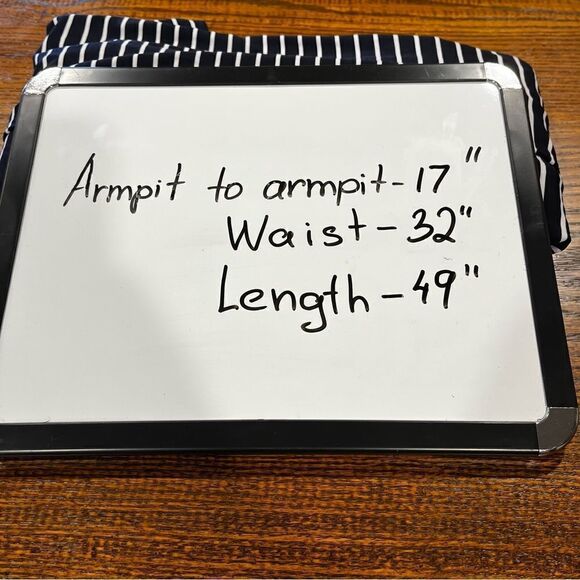 Armpit to armpit-17"
Waist-32"
Length-49"